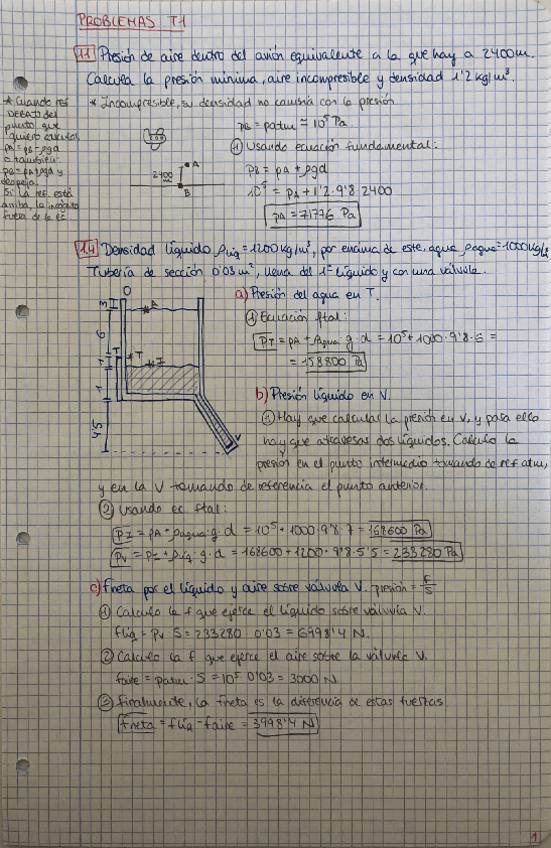 PROBLEMAS T1
1.1 Presión de aire dentro del avión equivalente a la que hay a 2400m.
Calcula la presión mínima, aire incompresible y densidad 1'2 kg/m³.
* Incompresible, su densidad no cambia con la presión
* Cuando ref
DEBAJO del
punto que
quiero calcular
pA = pB - ρgd
o también
pB = pA + ρgd y
despeja.
Si la ref. está
arriba, la incógnita
fuera de la ec
pB = patm = 10⁵ Pa
① Usando ecuación fundamental:
A
2400
B
pB = pA + ρgd
10⁵ = pA + 1'2·9'8·2400
pA = 71776 Pa
1.4 Densidad líquido ρliq = 1200 kg/m³, por encima de este, agua ρagua = 1000 kg/
Tubería de sección 0'03 m², llena del 1er líquido y con una válvula.
O
3
A
6
T
T
I
1
1
4'5
V
a) Presión del agua en T.
① Ecuación ftal:
PT = pA + ρagua·g·d = 10⁵ + 1000·9'8·6 =
= 158800 Pa
b) Presión líquido en V.
① Hay que calcular la presión en V, y para ello
hay que atravesar dos líquidos. Calculo la
presión en el punto intermedio tomando de ref atm,
y en la V tomando de referencia el punto anterior.
② Usando ec ftal:
PI = pA + ρagua·g·d = 10⁵ + 1000·9'8·7 = 168600 Pa
PV = PI + ρliq·g·d = 168600 + 1200·9'8·5'5 = 233280 Pa
c) Fneta por el líquido y aire sobre válvula V. presión = F/S
① Calculo la f que ejerce el líquido sobre válvula V.
fliq = PV·S = 233280·0'03 = 6998'4 N.
② Calculo la f que ejerce el aire sobre la válvula V.
faire = patm·S = 10⁵·0'03 = 3000 N
③ Finalmente, la fneta es la diferencia de estas fuerzas.
Fneta = fliq - faire = 3998'4 N
1